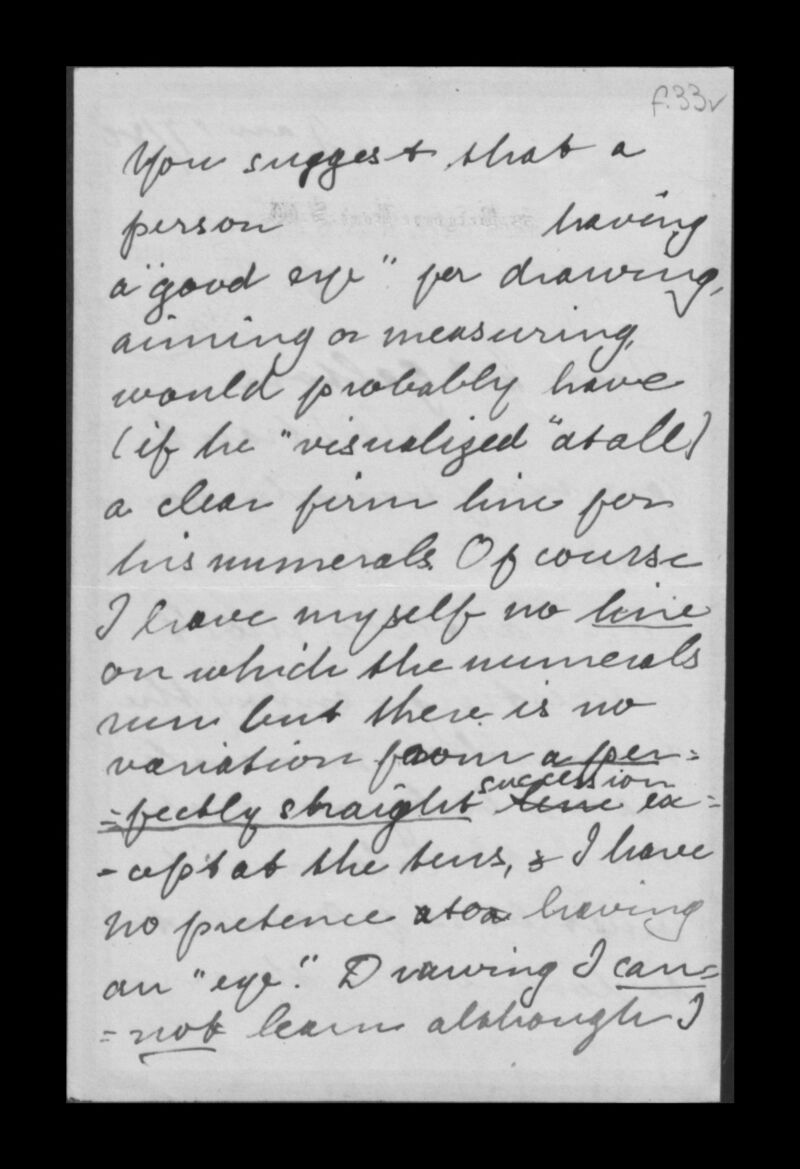 f.33v
You suggest that a
person having
a "good eye" for drawing,
aiming or measuring,
would probably have
(if he "visualized" at all)
a clear firm line for
his numerals. Of course
I have myself no line
on which the numerals
run but there is no
variation from a per=
=fectly straight line succession ex=
-cept at the tens, & I have
no pretence to having
an "eye". Drawing I can=
=not learn although I